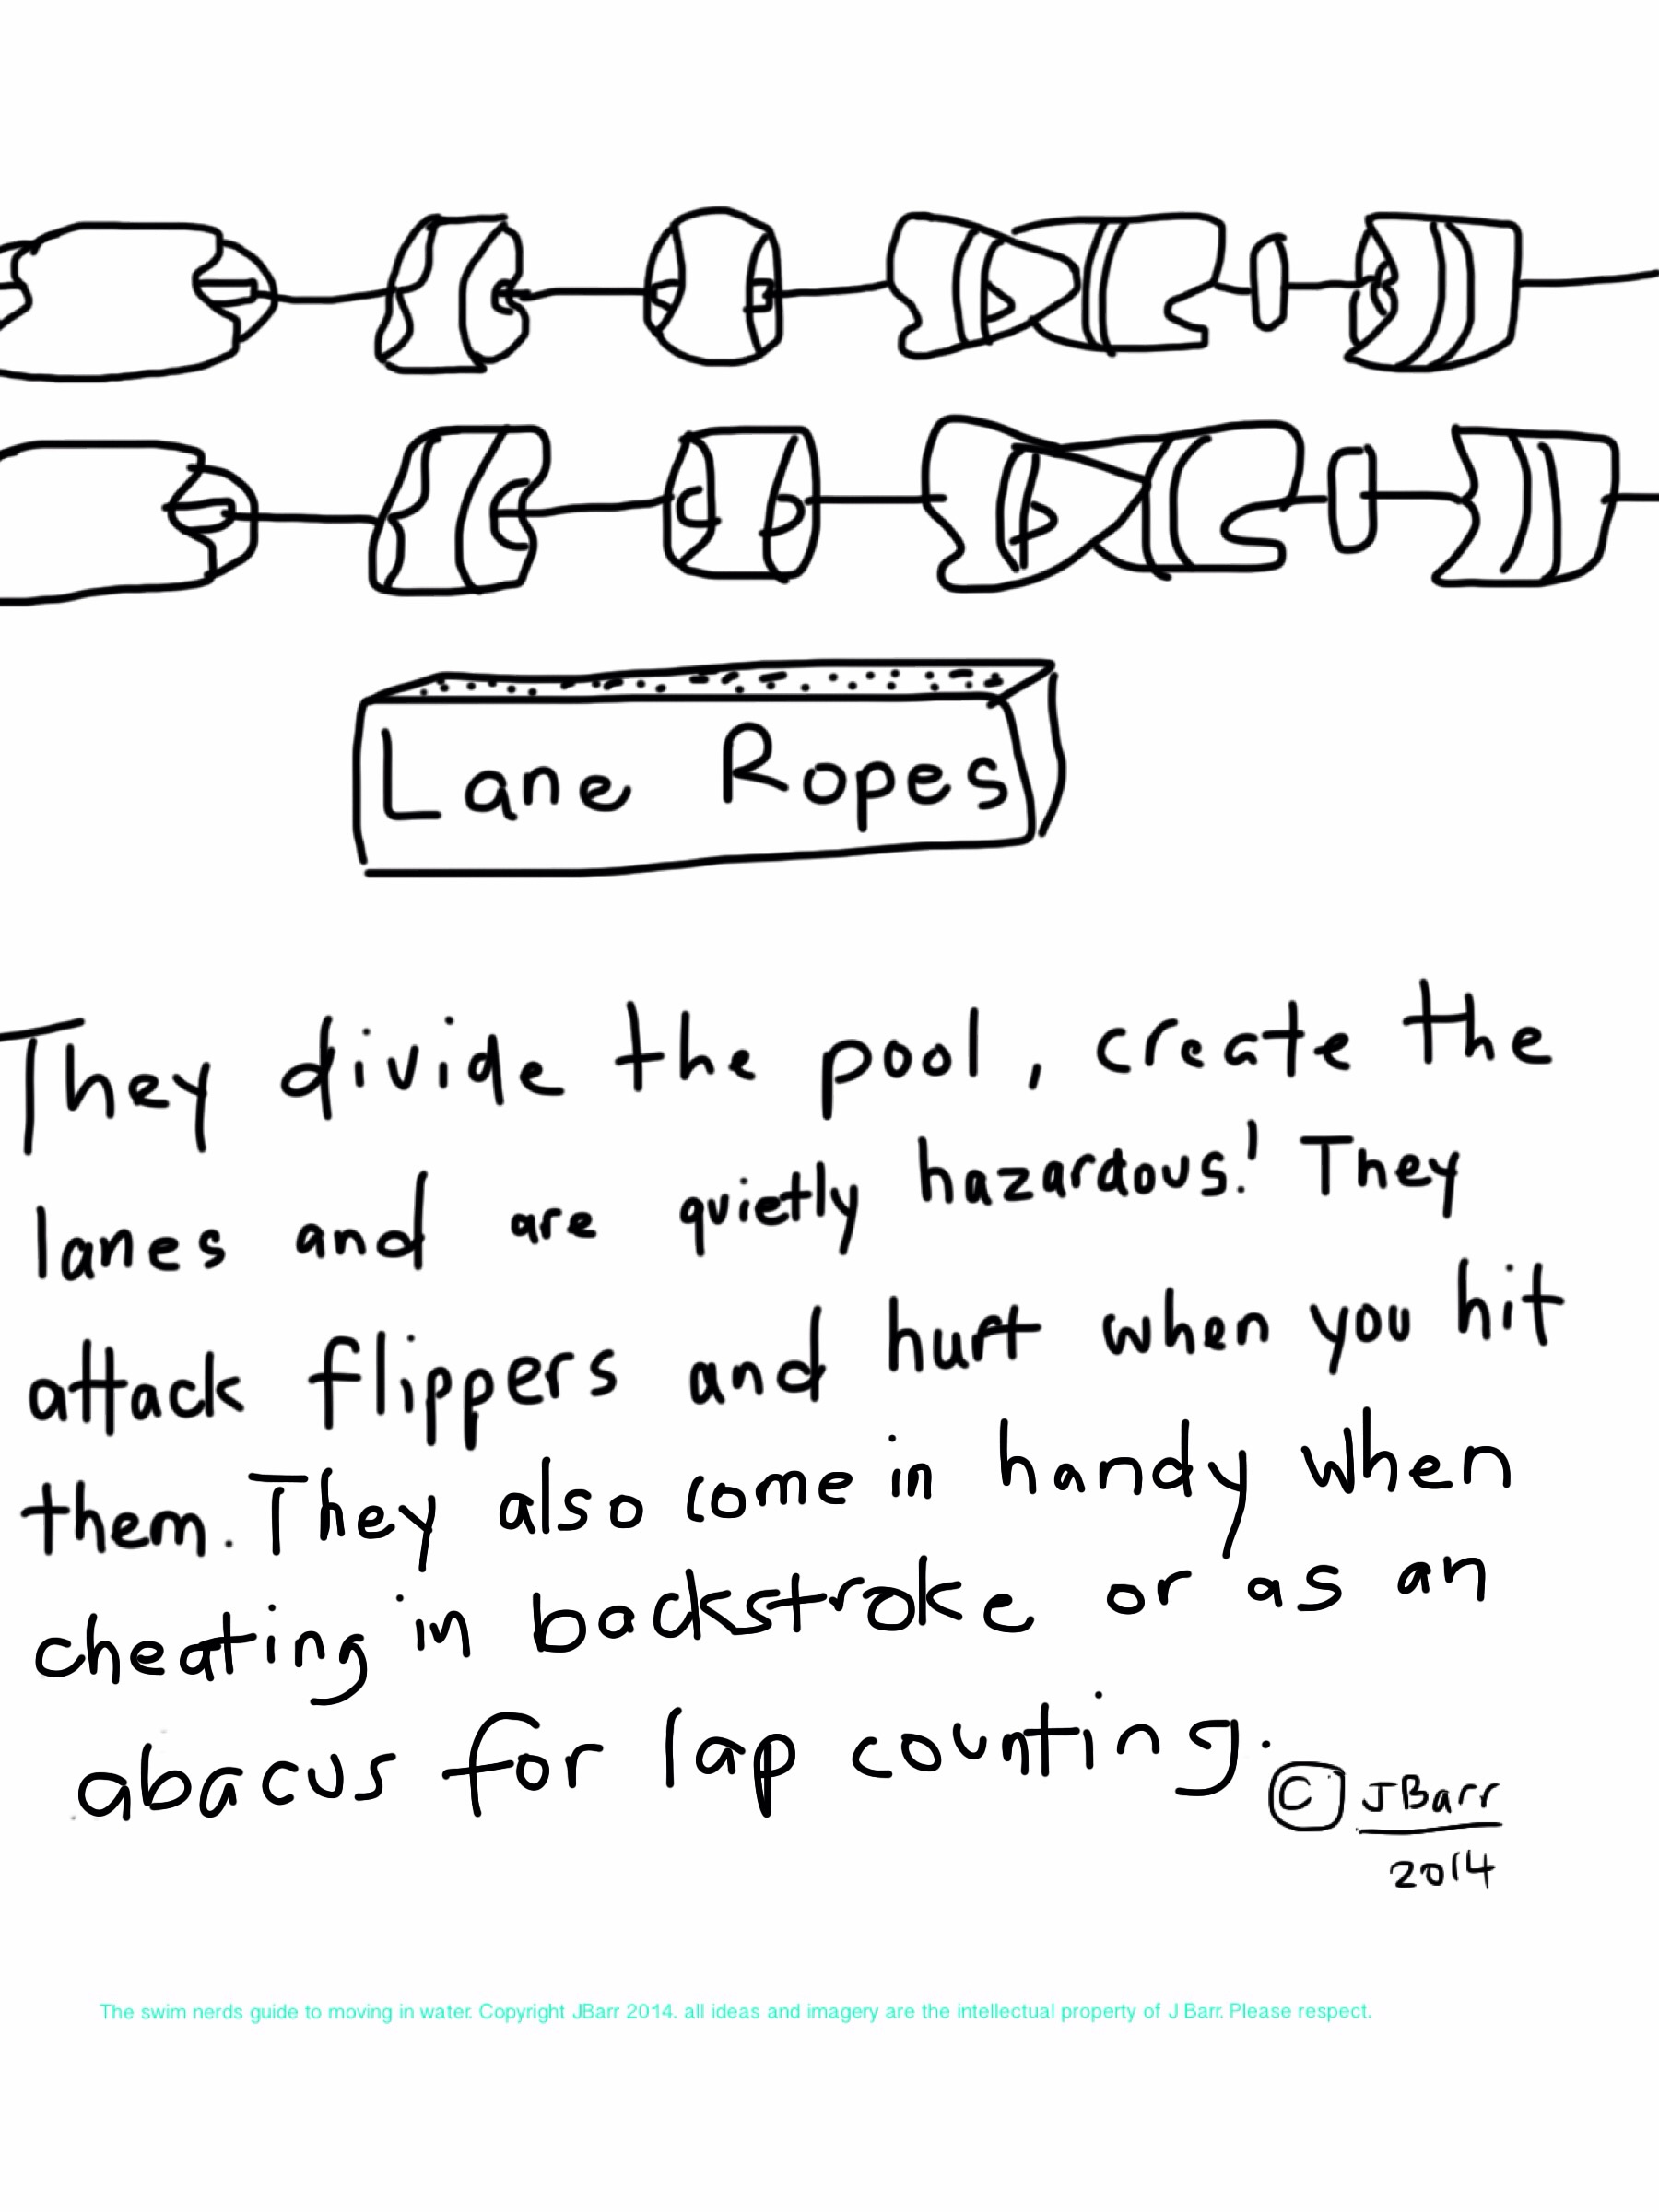 Lane Ropes
They divide the pool, create the
lanes and are quietly hazardous! They
attack flippers and hurt when you hit
them. They also come in handy when
cheating in backstroke or as an
abacus for lap counting.
© JBarr
2014
The swim nerds guide to moving in water. Copyright JBarr 2014. all ideas and imagery are the intellectual property of J Barr. Please respect.